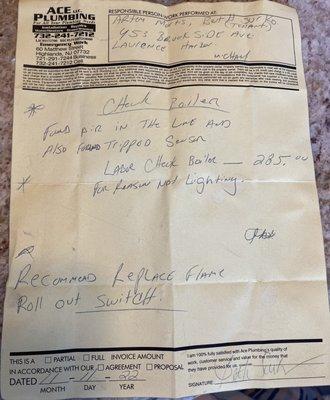 ACE of
PLUMBING
732-241-7212
Emergency Work
60 Matthew Street
Highlands, NJ 07732
721-291-7244 Business
732-241-7212 Cell
RESPONSIBLE PERSON-WORK PERFORMED AT:
953 Brook SiDE AVE
LAURENCE HARBOR
michael
Check Boiler
Found Air in The Line AND
Also Found Tripped Sensor
Labor Check Boiler — 285.00
For Reason Not Lighting.
RECOMMEND REPLACE FLAME
Roll out Switch.
THIS IS A ☐ PARTIAL ☐ FULL INVOICE AMOUNT
IN ACCORDANCE WITH OUR ☐ AGREEMENT ☐ PROPOSAL
DATED 11 - 11 - 22
MONTH DAY YEAR
I am 100% fully satisfied with Ace Plumbing's quality of
work, customer service and value for the money that
they have provided for us.
SIGNATURE